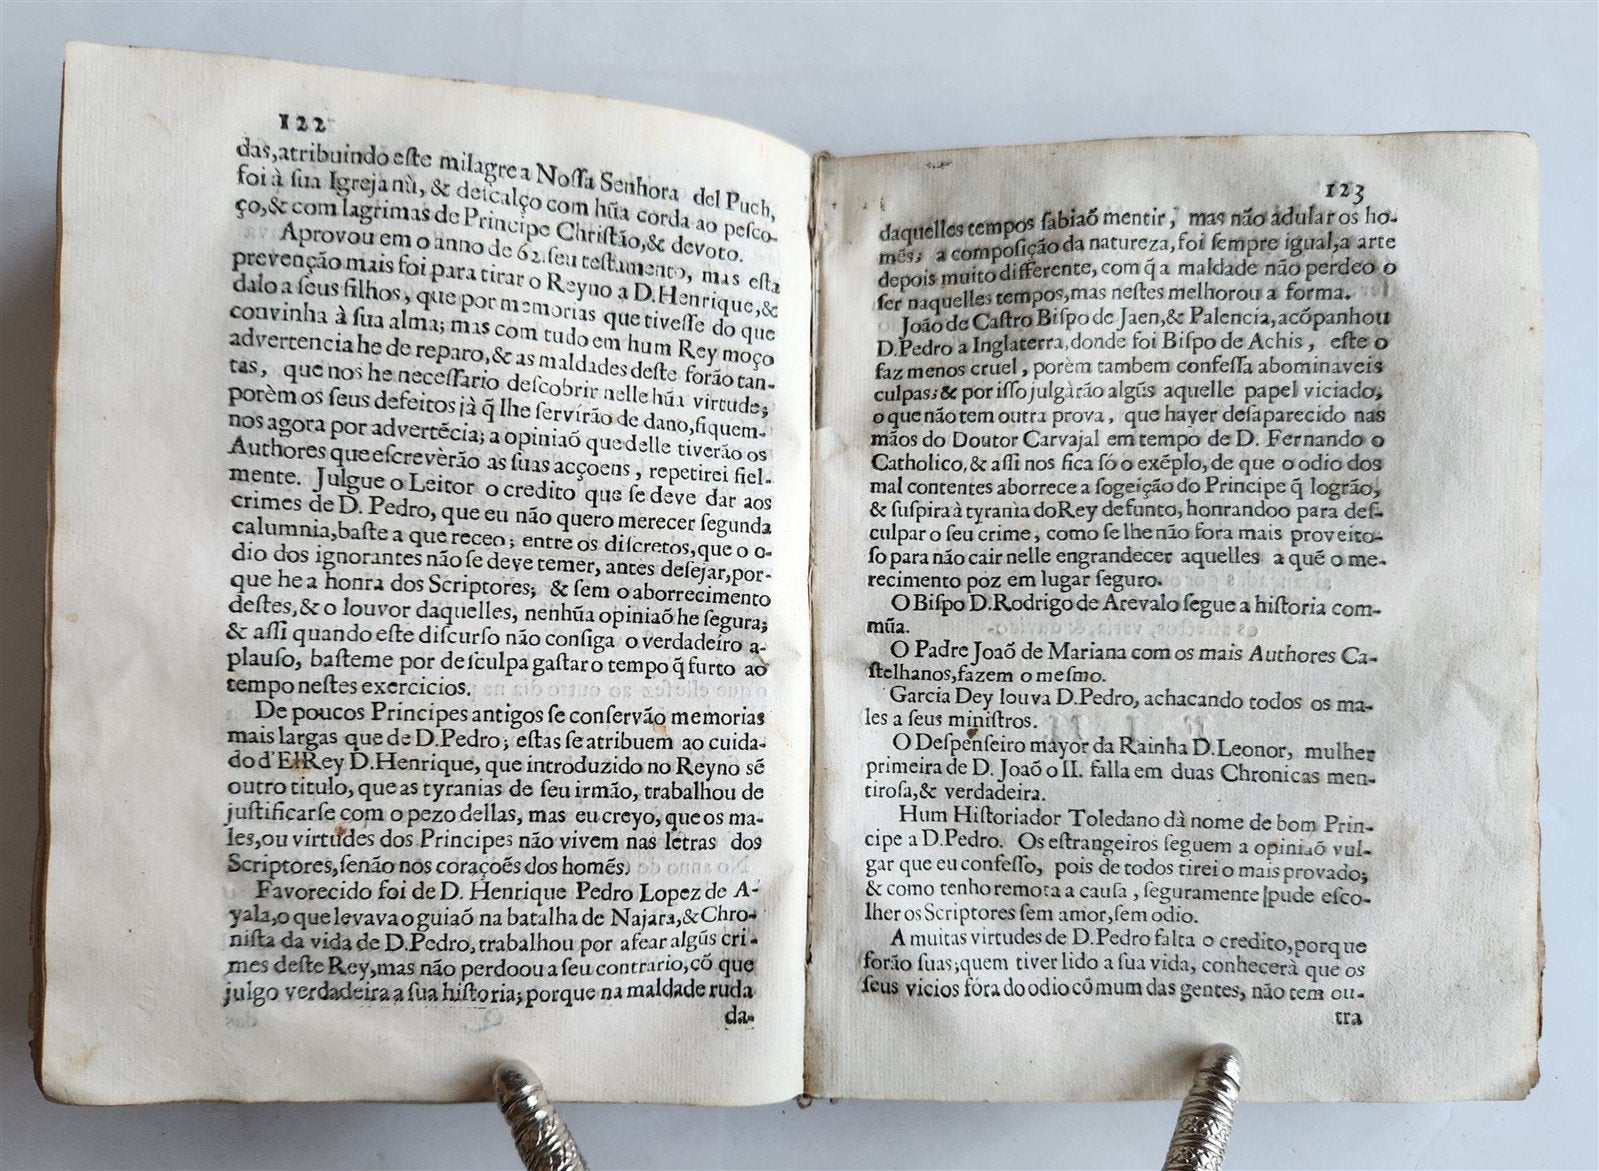 122
das, atribuindo eſte milagre a Noſſa Senhora del Puch,
foi à ſua Igreja nù, & deſcalço com hũa corda ao peſco-
ço, & com lagrimas de Principe Chriſtão, & devoto.
Aprovou em o anno de 62. ſeu teſtamento, mas eſta
prevenção mais foi para tirar o Reyno a D. Henrique, &
dalo a ſeus filhos, que por memorias que tiveſſe do que
convinha à ſua alma; mas com tudo em hum Rey moço
advertencia he de reparo, & as maldades deſte forão tan-
tas, que nos he neceſſario deſcobrir nelle hũa virtude;
porèm os ſeus defeitos jà q̃ lhe ſervirão de dano, fiquem-
nos agora por advertẽcia; a opiniaõ que delle tiverão os
Authores que eſcrevèrão as ſuas acçoens, repetirei fiel-
mente. Julgue o Leitor o credito que ſe deve dar aos
crimes de D. Pedro, que eu não quero merecer ſegunda
calumnia, baſte a que receo; entre os diſcretos, que o o-
dio dos ignorantes não ſe deve temer, antes deſejar, por-
que he a honra dos Scriptores; & ſem o aborrecimento
deſtes, & o louvor daquelles, nenhũa opiniaõ he ſegura;
& aſſi quando eſte diſcurſo não conſiga o verdadeiro a-
plauſo, baſteme por deſculpa gaſtar o tempo q̃ furto ao
tempo neſtes exercicios.
De poucos Principes antigos ſe conſervão memorias
mais largas que de D. Pedro; eſtas ſe atribuem ao cuida-
do d'ElRey D. Henrique, que introduzido no Reyno sẽ
outro titulo, que as tyranias de ſeu irmão, trabalhou de
juſtificarſe com o pezo dellas, mas eu creyo, que os ma-
les, ou virtudes dos Principes não vivem nas letras dos
Scriptores, ſenão nos coraçoẽs dos homẽs.
Favorecido foi de D. Henrique Pedro Lopez de A-
yala, o que levava o guiaõ na batalha de Najara, & Chro-
niſta da vida de D. Pedro, trabalhou por afear algũs cri-
mes deſte Rey, mas não perdoou a ſeu contrario, cõ que
julgo verdadeira a ſua hiſtoria; porque na maldade ruda
da-
123
daquelles tempos ſabiaõ mentir, mas não adular os ho-
mẽs; a compoſição da natureza, foi ſempre igual, a arte
depois muito differente, com q̃ a maldade não perdeo o
ſer naquelles tempos, mas neſtes melhorou a forma.
João de Caſtro Biſpo de Jaen, & Palencia, acõpanhou
D. Pedro a Inglaterra, donde foi Biſpo de Achis, eſte o
faz menos cruel, porèm tambem confeſſa abominaveis
culpas; & por iſſo julgàrão algũs aquelle papel viciado,
o que não tem outra prova, que haver deſaparecido nas
mãos do Doutor Carvajal em tempo de D. Fernando o
Catholico, & aſſi nos fica ſó o exẽplo, de que o odio dos
mal contentes aborrece a ſogeição do Principe q̃ logrão,
& ſuſpira à tyrania do Rey defunto, honrandoo para deſ-
culpar o ſeu crime, como ſe lhe não fora mais proveito-
ſo para não cair nelle engrandecer aquelles a quẽ o me-
recimento poz em lugar ſeguro.
O Biſpo D. Rodrigo de Arevalo ſegue a hiſtoria com-
mũa.
O Padre Joaõ de Mariana com os mais Authores Ca-
ſtelhanos, fazem o meſmo.
Garcia Dey louva D. Pedro, achacando todos os ma-
les a ſeus miniſtros.
O Deſpenſeiro mayor da Rainha D. Leonor, mulher
primeira de D. Joaõ o II. falla em duas Chronicas men-
tiroſa, & verdadeira.
Hum Hiſtoriador Toledano dà nome de bom Prin-
cipe a D. Pedro. Os eſtrangeiros ſeguem a opiniaõ vul-
gar que eu confeſſo, pois de todos tirei o mais provado;
& como tenho remota a cauſa, ſeguramente pude eſco-
lher os Scriptores ſem amor, ſem odio.
A muitas virtudes de D. Pedro falta o credito, porque
forão ſuas; quem tiver lido a ſua vida, conhecerà que os
ſeus vicios fóra do odio cõmum das gentes, não tem ou-
tra